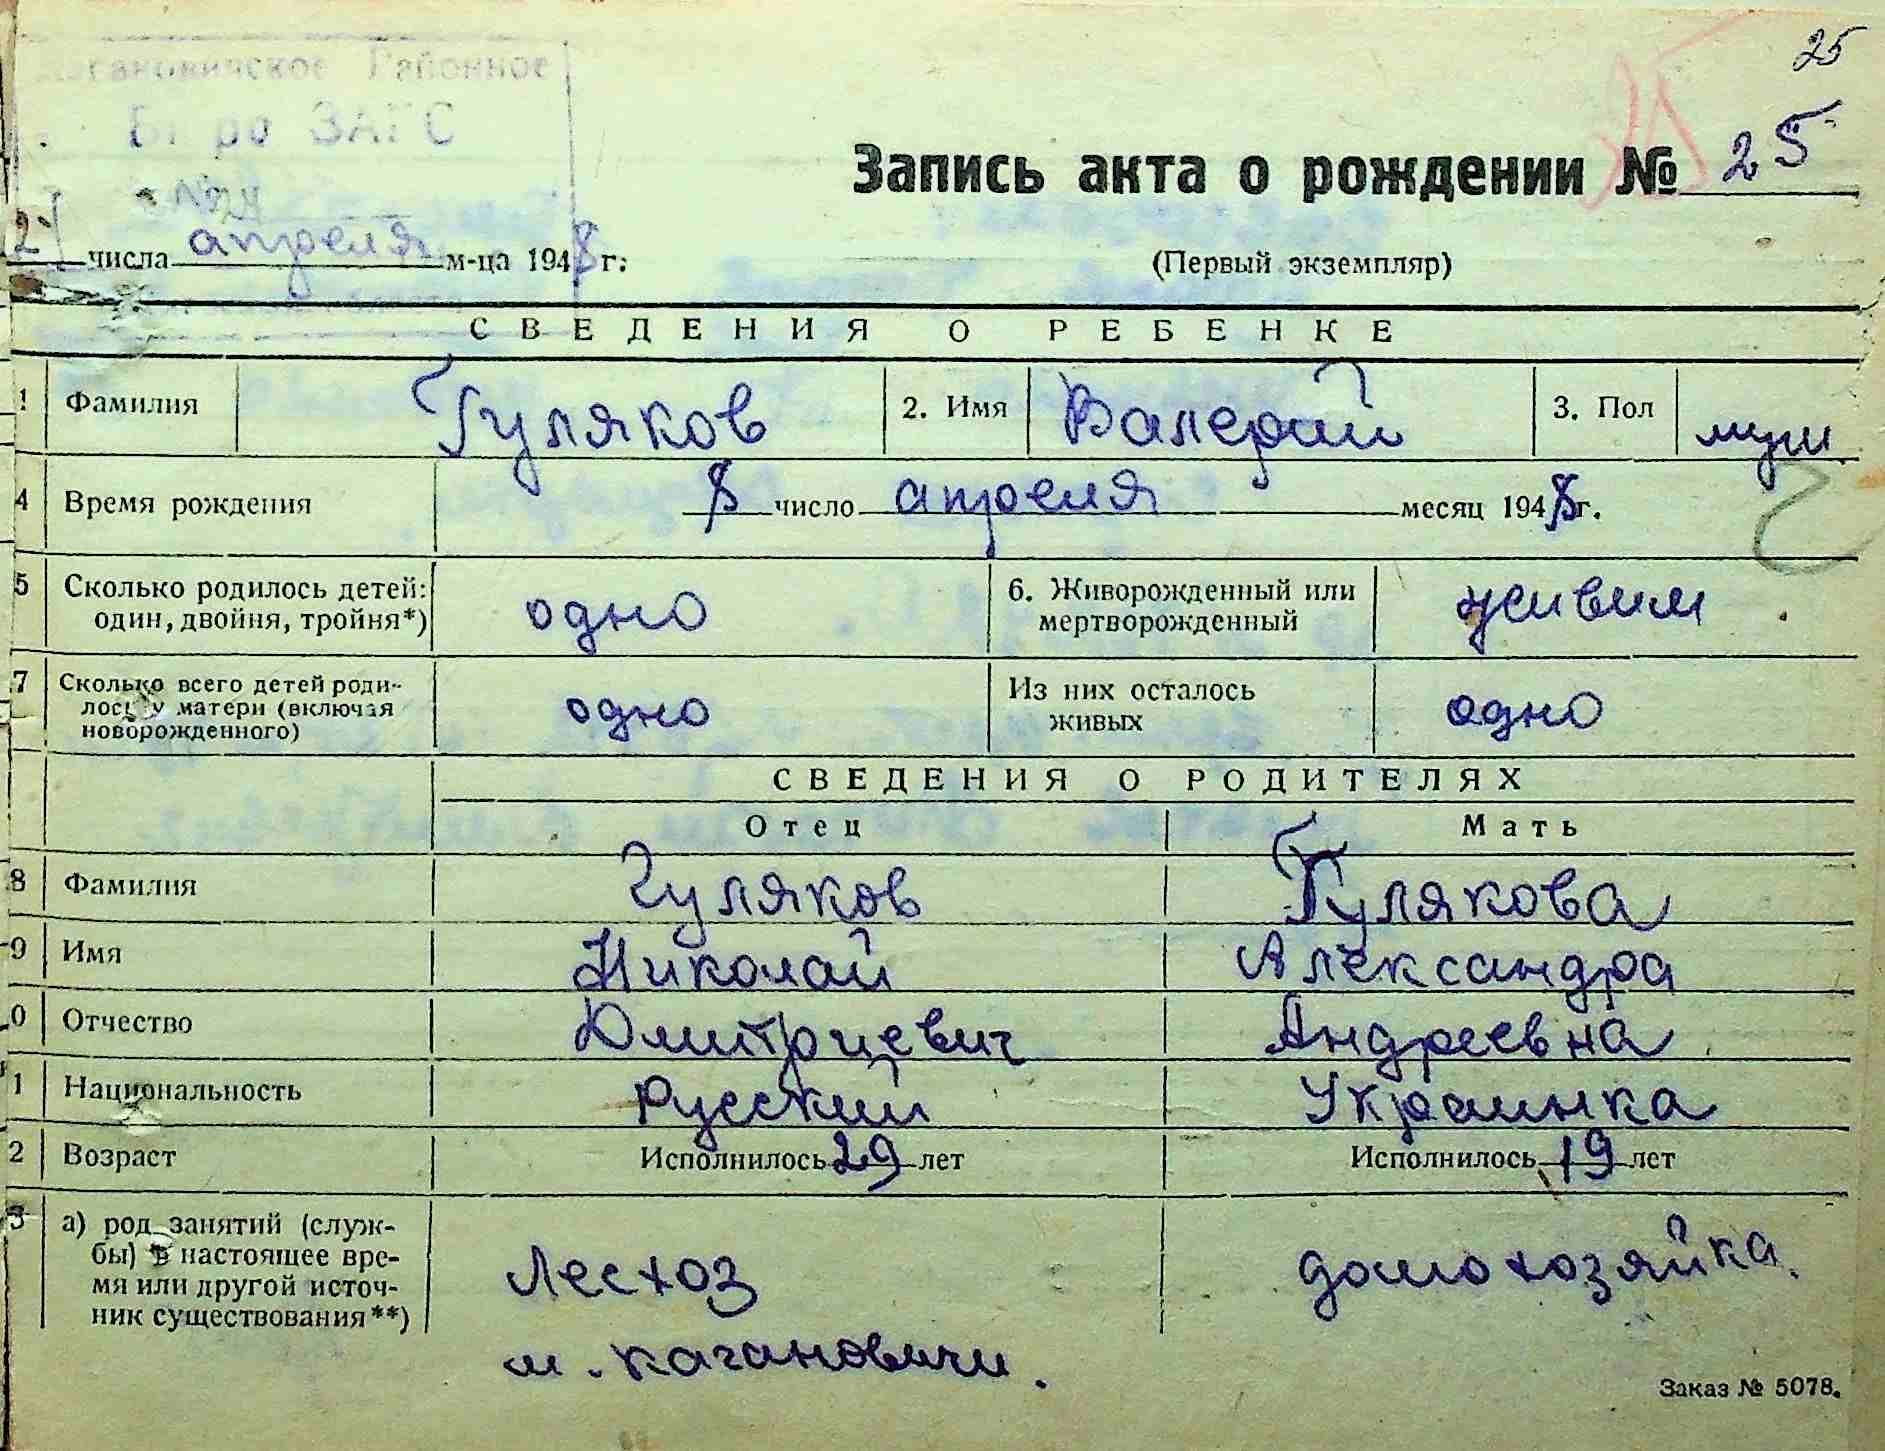 25
Районное
Бюро ЗАГС
Запись акта о рождении № 25
числа апреля м-ца 1948 г.
(Первый экземпляр)
СВЕДЕНИЯ О РЕБЕНКЕ
1 Фамилия Гуляков 2. Имя Валерий 3. Пол муж
4 Время рождения 8 число апреля месяц 1948 г.
5 Сколько родилось детей: один, двойня, тройня*) одно 6. Живорожденный или мертворожденный живым
7 Сколько всего детей родилось у матери (включая новорожденного) одно Из них осталось живых одно
СВЕДЕНИЯ О РОДИТЕЛЯХ
Отец Мать
8 Фамилия Гуляков Гулякова
9 Имя Николай Александра
0 Отчество Дмитриевич Андреевна
1 Национальность Русский Украинка
2 Возраст Исполнилось 29 лет Исполнилось 19 лет
3 а) род занятий (служ-
бы) в настоящее вре-
мя или другой источ-
ник существования**)
Лесхоз
м. Кагановичи.
домохозяйка.
Заказ № 5078.